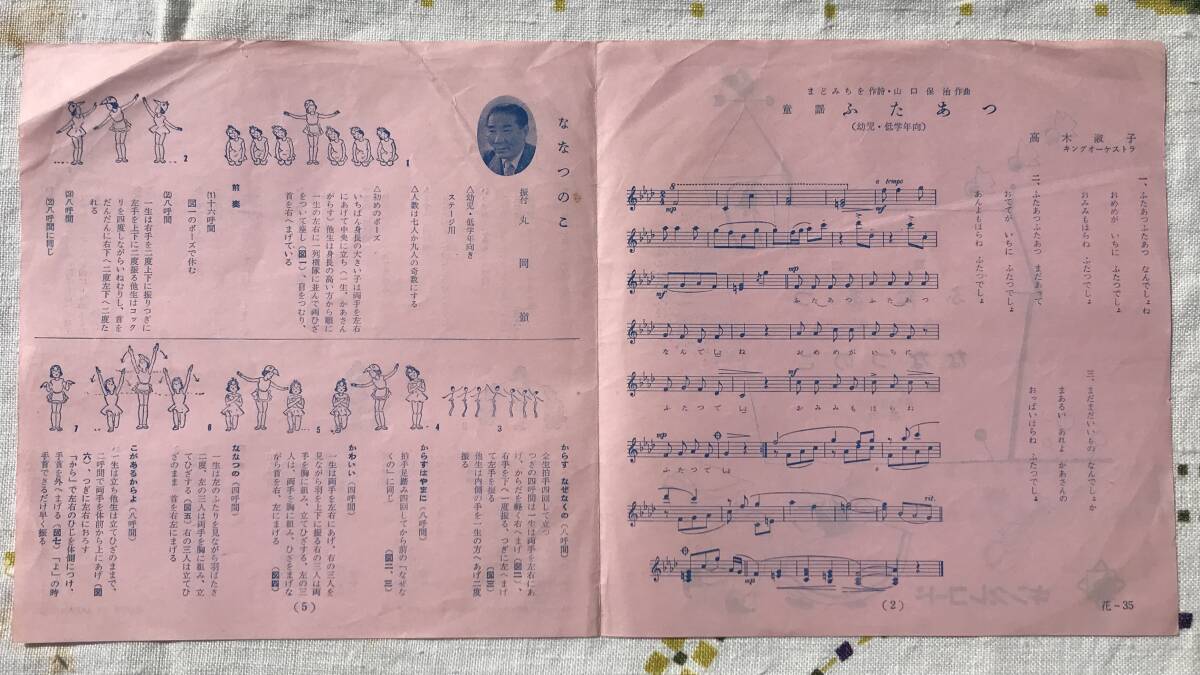 まどみちを作詩・山口保治作曲
童謡 ふたあつ
(幼児・低学年向)
高木淑子
キングオーケストラ
一、ふたあつふたあつ なんでしょね
おめめが いちに ふたつでしょ
おみみもほらね ふたつでしょ
二、ふたあつふたあつ まだあって
おててが いちに ふたつでしょ
あんよもほらね ふたつでしょ
三、まだまだいいもの なんでしょか
まあるい あれよ かあさんの
おっぱいほらね ふたつでしょ
8
a tempo
mp
mf
mp
mf
ふたあつ ふたあつ
なんでしょね おめめがいちに
mf
ふたつでしょ おみみもほらね
ふたつでしょ
rit.
mp
(2)
花-35
ななつのこ
振付 丸岡嶺
△幼児・低学年向き
ステージ用
△人数は七人か九人の奇数にする
△初めのポーズ
いちばん身長の大きい子は両手を左右
にあげて中央に立ち(一生、かあさん
がらす)他生は身長の高い方から順に
一生の左右に一列横隊に並んで両ひざ
をついて座し(図一)、目をつむり、
首を右へまげている
前奏
(1)十六呼間
図一のポーズで休む
(2)八呼間
一生は右手を二度上下に振りつぎに
左手を上下に二度振る他生はコック
リを四度しながらいねむりし、首を
だんだんに右下へ二度左下へ二度た
れる
(3)八呼間
(2)八呼間に同じ
1
2
3
4
5
6
7
からす なぜなくの(八呼間)
全生拍手四回して立つ
つぎの四呼間は一生は両手を左右にあ
げ、からだを軽く右へまげ(図二)、
右手を下へ一度振る、つぎに左へまげ
て左手を振る(図三)
他生は内側の手を一生の方へあげ二度
振る
からすはやまに(八呼間)
拍手足踏み四回してから前の「なぜな
くの」に同じ(図二、三)
かわいい(四呼間)
一生は両手を左右にあげ、右の三人を
見ながら羽を上下に振る右の三人は両
手を胸に組み、立てひざする、左の三
人は、両手を胸に組み、ひざをまげな
がら首を右、左にまげる
(図四)
ななつの(四呼間)
一生は左のふたりを見ながら羽ばたき
二度、左の三人は両手を胸に組み、立
てひざする(図五)右の三人は立てひ
ざのまま 首を右左にまげる
こがあるからよ(八呼間)
一生は立ち他生は立てひざのままで、
二呼間で両手を体前から上にあげ(図
六)、つぎに左右におろす
「から」で左右のひじを体側につけ、
手首を外へまげる(図七)「よ」の時
手首でできるだけ早く振る
(5)